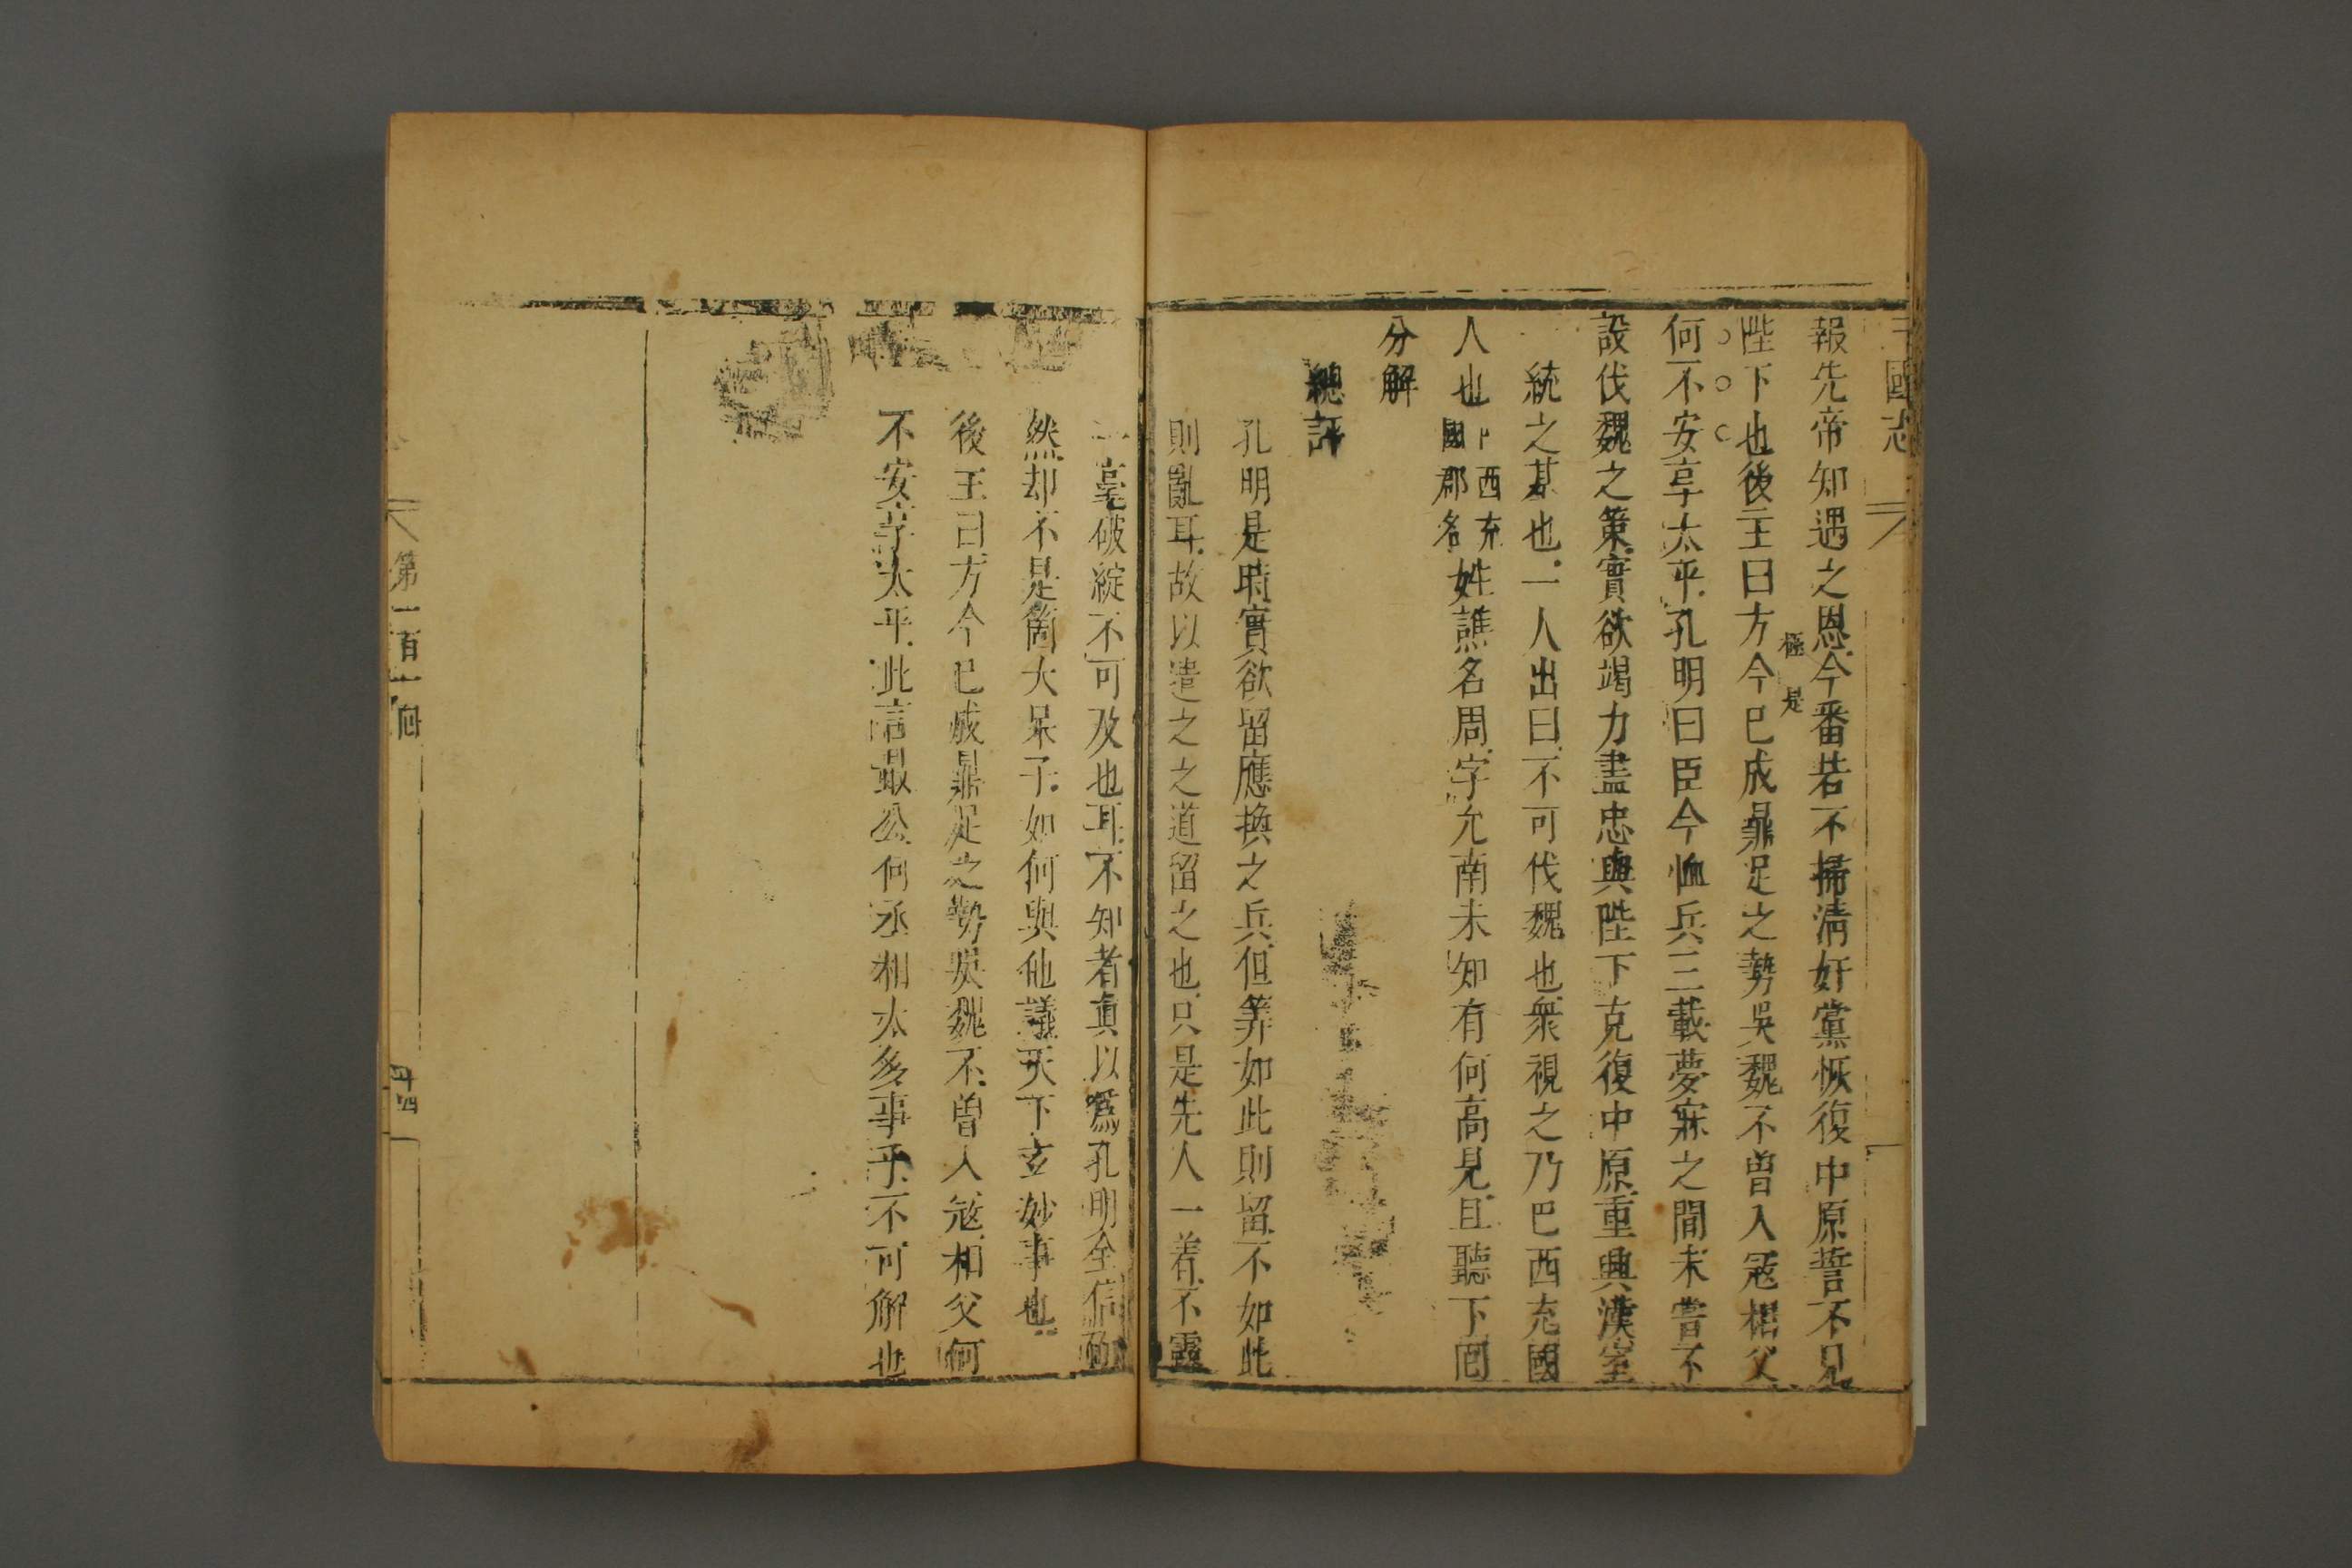 三國志
報先帝知遇之恩今番若不掃清奸黨恢復中原誓不見
極是
陛下也後主曰方今已成鼎足之勢吳魏不曾入寇相父
何不安享太平孔明曰臣今恤兵三載夢寐之間未嘗不
設伐魏之策實欲竭力盡忠與陛下克復中原重興漢室
統之基也一人出曰不可伐魏也衆視之乃巴西充國
人也西充國郡名姓譙名周字允南未知有何高見且聽下囬
分解
總評
孔明是時實欲留應換之兵但筭如此則留不如此
則亂耳故以遣之之道留之也只是先人一着不露
一毫破綻不可及也耳不知者眞以爲孔明全信
然却不是箇大呆子如何與他議天下玄妙事也
後主曰方今已成鼎足之勢吳魏不曾入寇相父何
不安享太平此言最公何丞相太多事乎不可解也
第一百一囬
十四